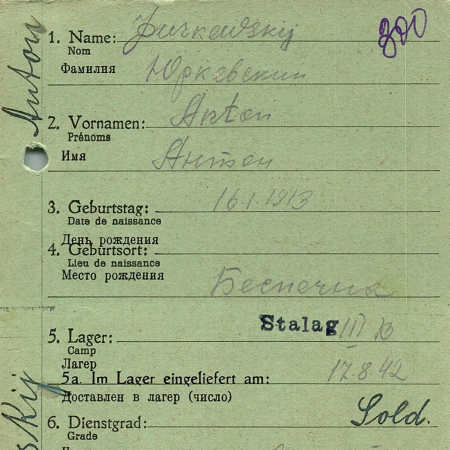 800
1. Name: Jurkewskij
Nom
Фамилия Юркевский
2. Vornamen: Anton
Prénoms
Имя Антон
3. Geburtstag: 16.1.1913
Date de naissance
День рождения
4. Geburtsort:
Lieu de naissance
Место рождения Беспечна
Stalag III B
5. Lager:
Camp
Лагерь
5a. Im Lager eingeliefert am: 17.8.42
Доставлен в лагерь (число)
6. Dienstgrad: Sold.
Grade
Anton
skij